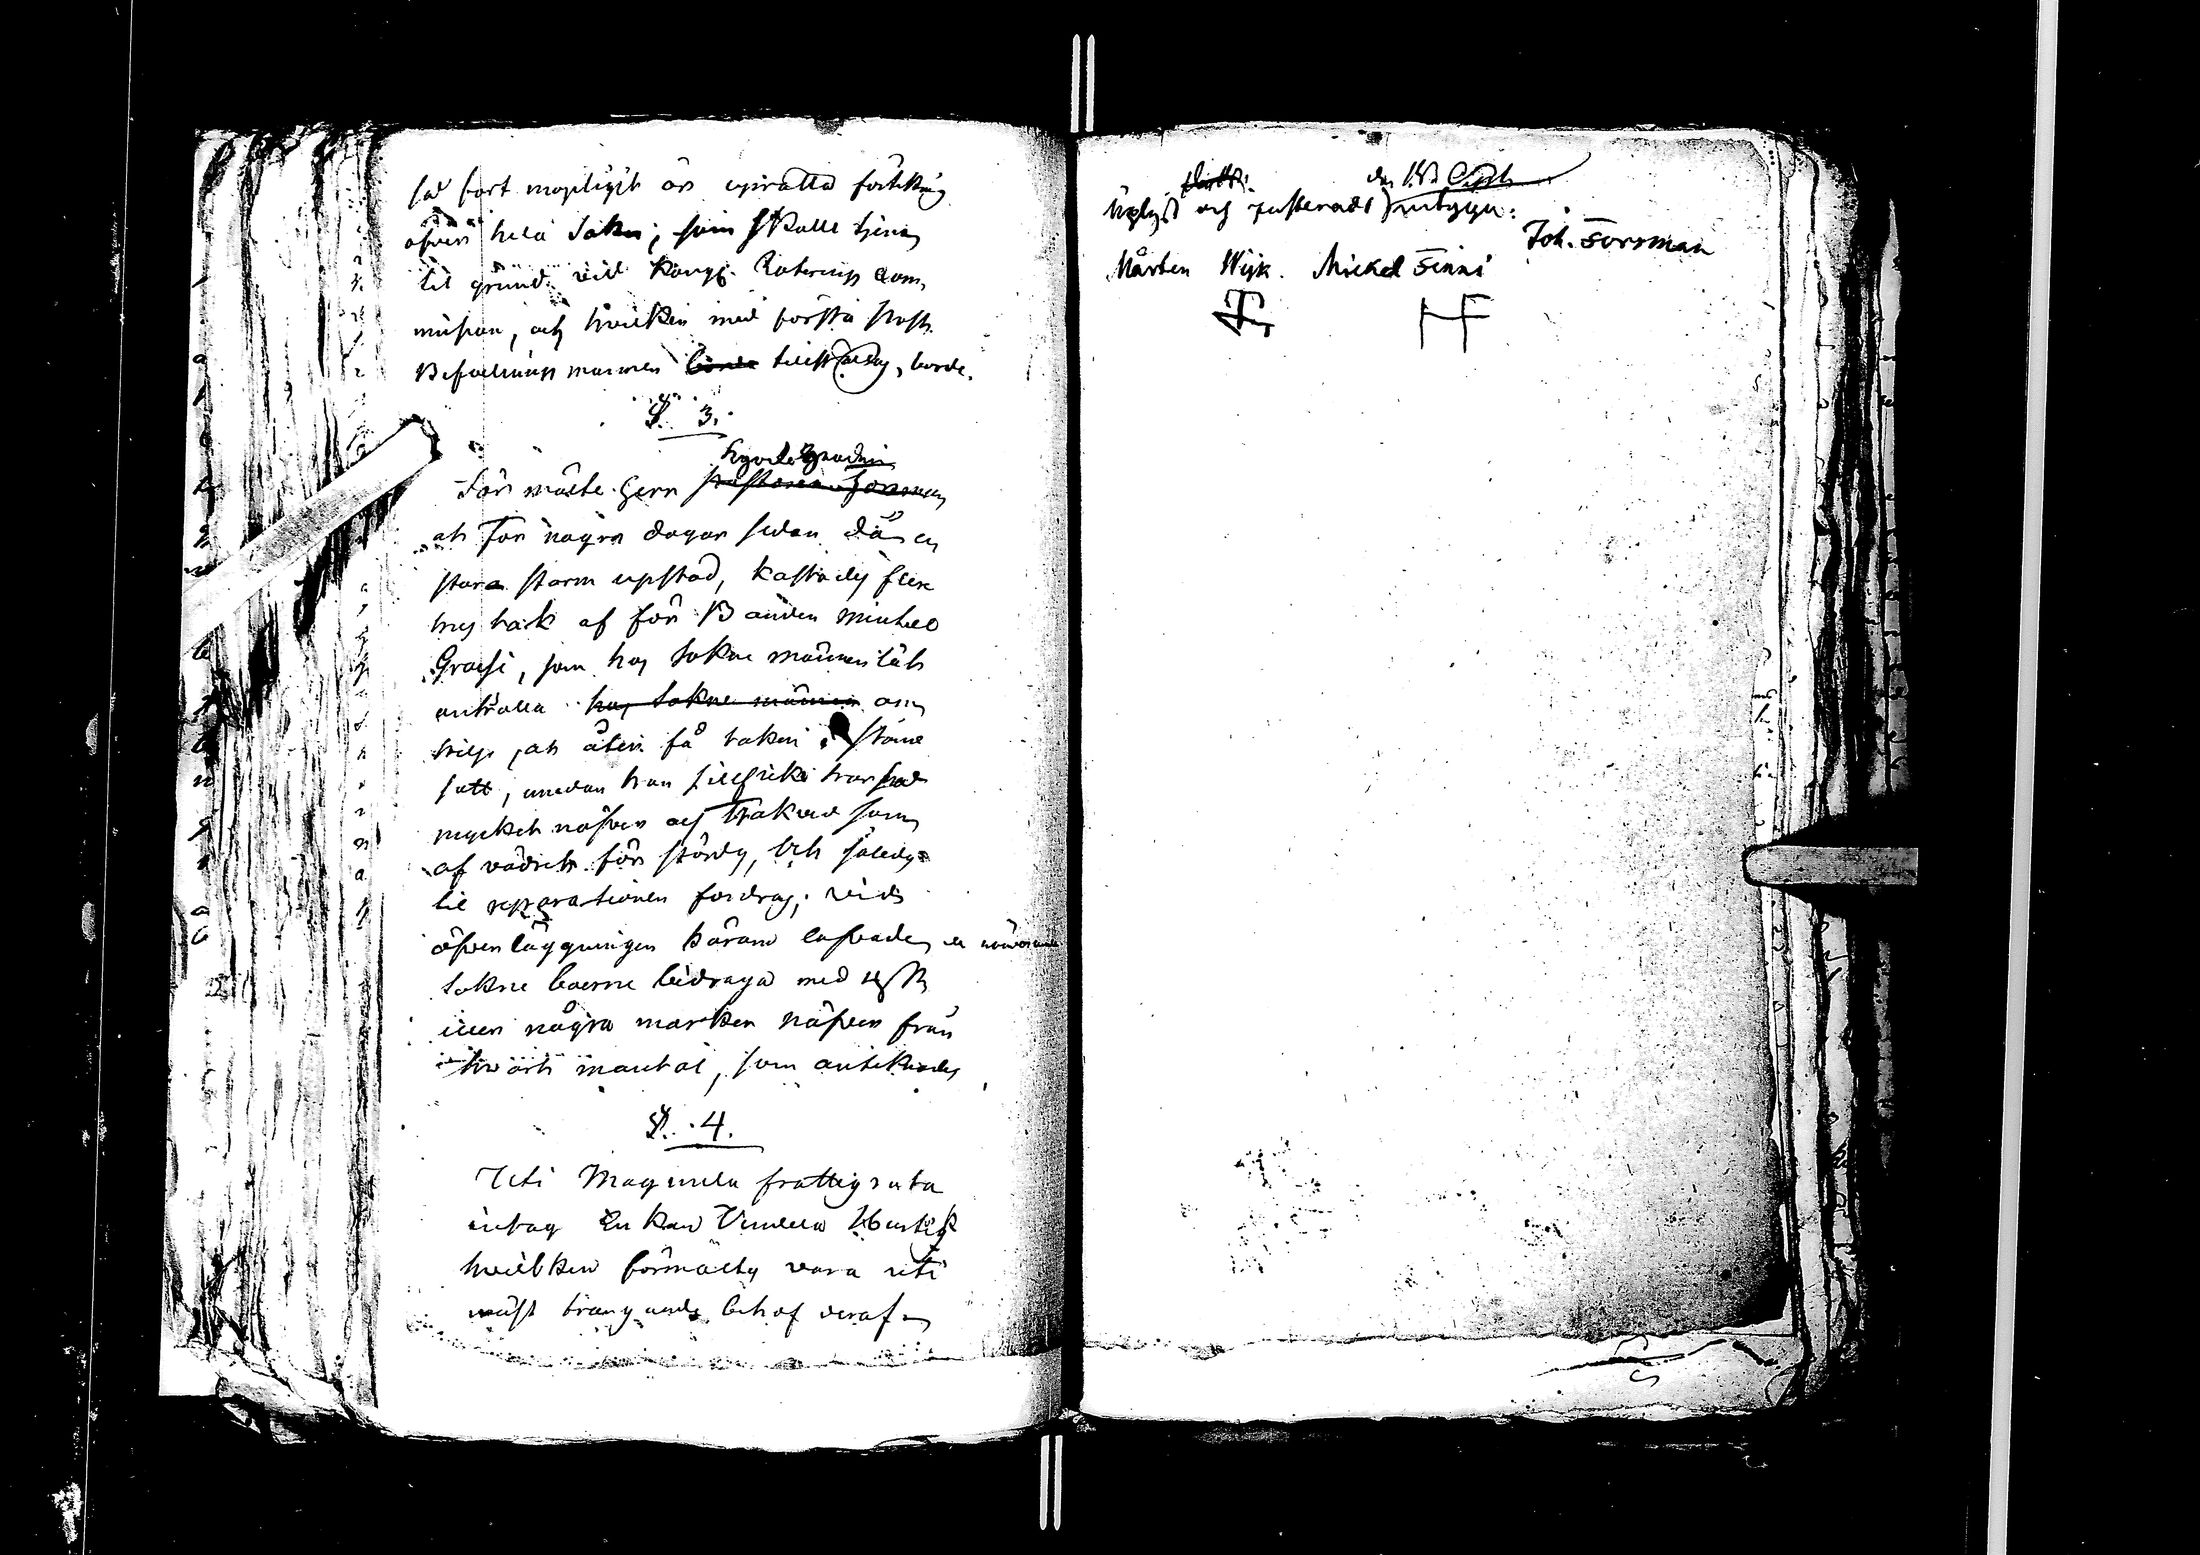 så fort möjligit är uprätta förtekning
öfver hela Sokn, som skulle tjena
til grund vid Kongl. Roterings Com,
mission, och hvilken med första skuli
Befallnings mannen borde tillställas, borde.
§. 3.
hgvälb. Gradin
Förmälte Herr Pastoren Forsman
at för några dagar sedan då en
stora storm upstod, kastades flere
hus tak af för Bonden Michel
Graessi, som hos Sokne männen lät
anhålla hos Sokne männen om
hielp, at åter få taken i stånd
satt, emedan han sielf icke har
mycket näfver och Takved som
af vädret förstördes, och således
til reparationen fordras; vid
öfverläggningen härom lofvade de närvarande
Sokne boerne bidraga med
eller några marker näfver från
hvart mantal, som anteknades
§. 4.
Uti Magnula fattig rota
intags Enkan
hvilken förmältes vara uti
mäst trängande behof deraf
Uplyst och justeradt betygar:
Joh. Forsman
Mårten Wijk. Mickel Finni
HF